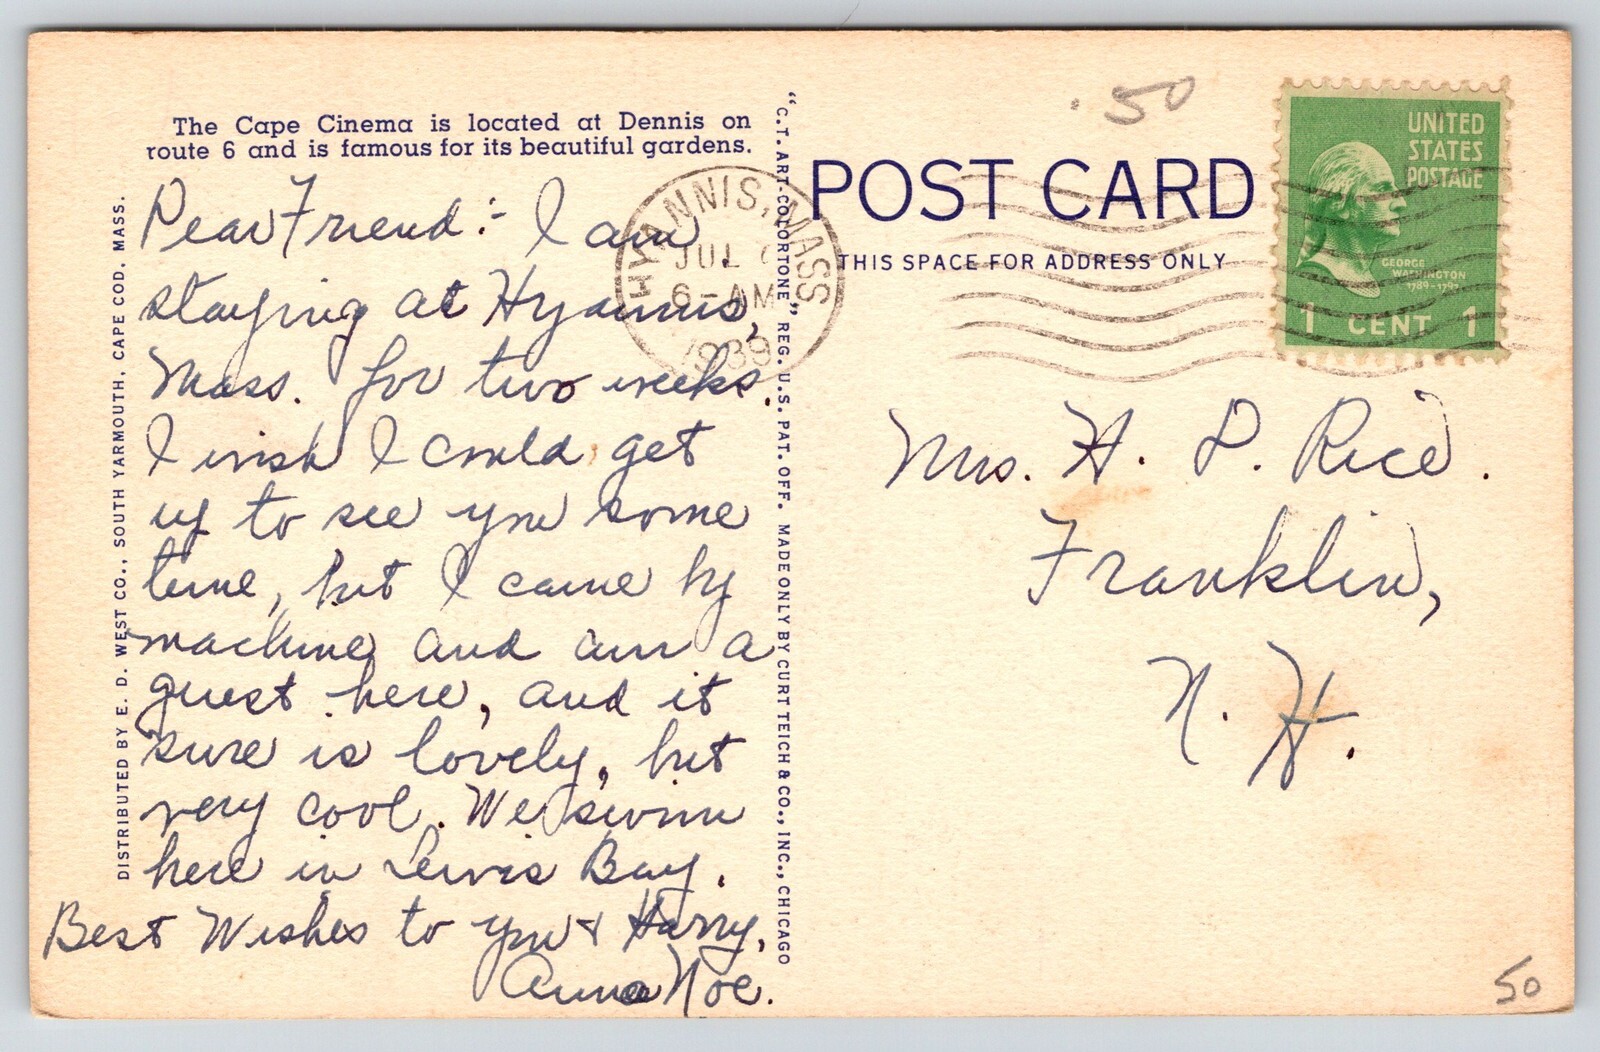 The Cape Cinema is located at Dennis on
route 6 and is famous for its beautiful gardens.
Dear Friend:- I am
staying at Hyannis,
Mass. for two weeks.
I wish I could get
up to see you some
time, but I came by
machine and am a
guest here, and it
sure is lovely, but
very cool. We swim
here in Lewis Bay.
Best Wishes to you & Harry,
Anna Noe.
DISTRIBUTED BY E. D. WEST CO., SOUTH YARMOUTH, CAPE COD, MASS.
"C.T. ART-COLORTONE" REG. U.S. PAT. OFF. MADE ONLY BY CURT TEICH & CO., INC., CHICAGO
HYANNIS, MASS
JUL
6-AM
1939
.50
POST CARD
THIS SPACE FOR ADDRESS ONLY
UNITED
STATES
POSTAGE
GEORGE
WASHINGTON
1789-1797
1 CENT 1
Mrs. H. P. Rice.
Franklin,
N. H.
50